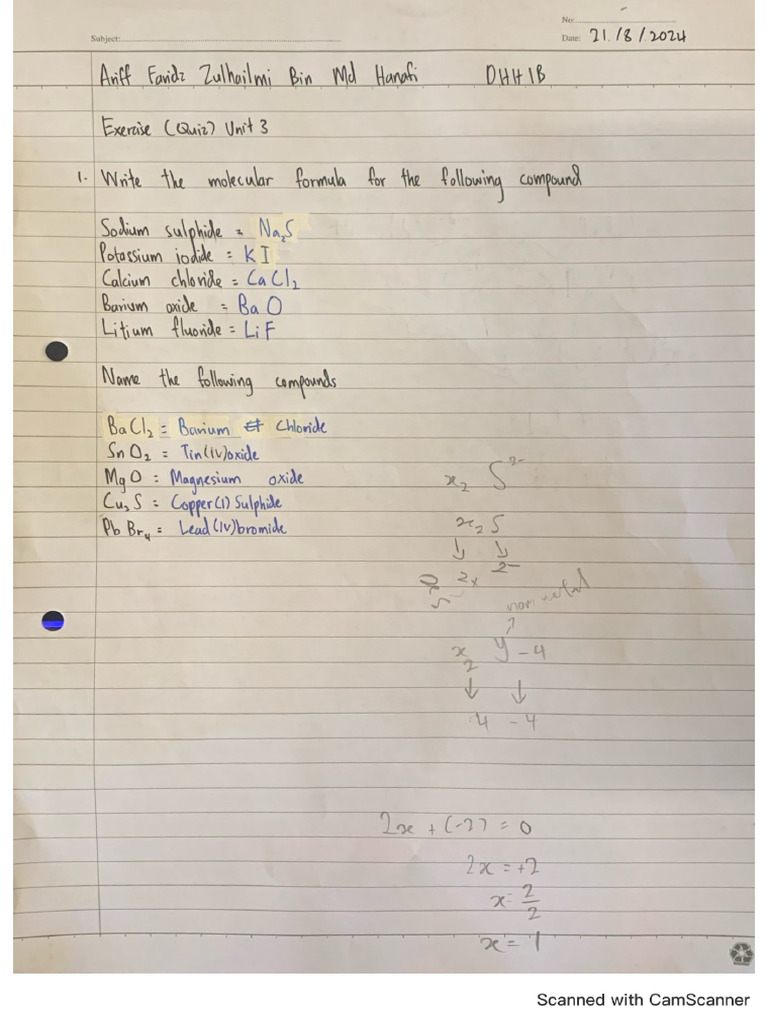 No:
Subject:
Date: 21/8/2024
Ariff Faridz Zulhailmi Bin Md Hanafi DHH1B
Exercise (Quiz) Unit 3
1. Write the molecular formula for the following compound
Sodium sulphide = Na₂S
Potassium iodide = KI
Calcium chloride = CaCl₂
Barium oxide = BaO
Litium fluoride = LiF
Name the following compounds
BaCl₂ = Barium Chloride
SnO₂ = Tin(IV)oxide
MgO = Magnesium oxide
Cu₂S = Copper(I) Sulphide
PbBr₄ = Lead(IV)bromide
x₂ S²⁻
x₂ S
↓ ↓
2x 2-
non metal
x₂ y-4
↓ ↓
4 -4
2x + (-2) = 0
2x = +2
x = 2/2
x = 1
Scanned with CamScanner